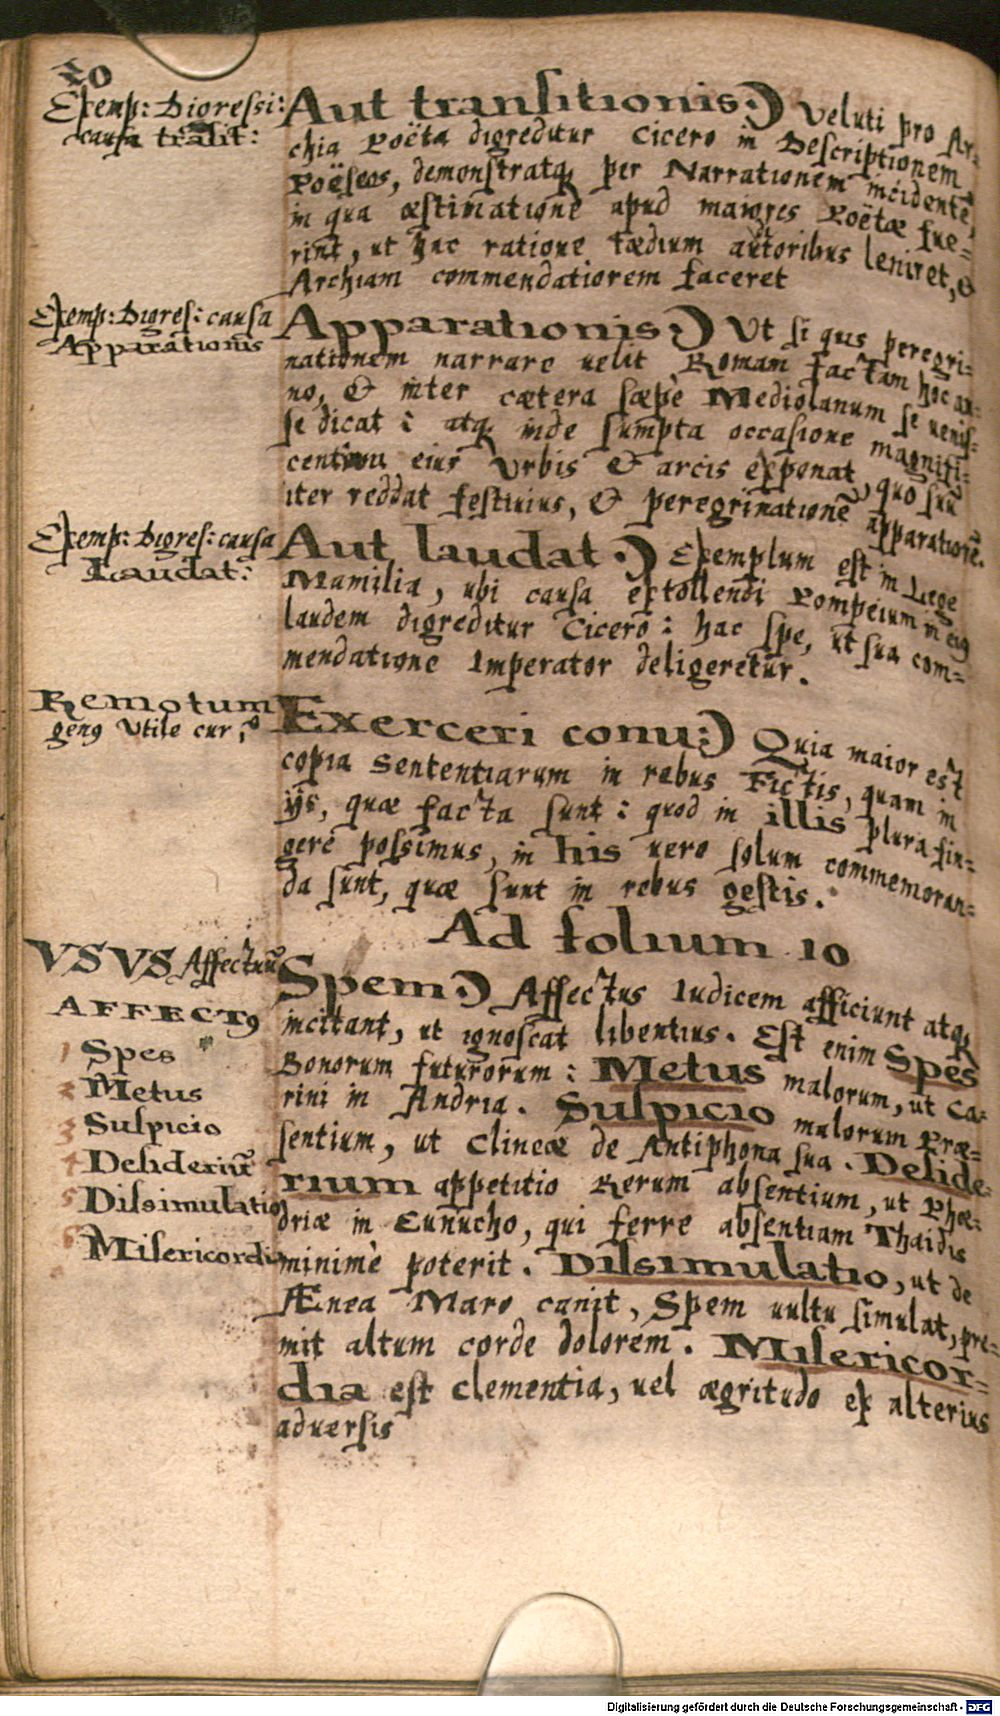 20
Exemp: Digressi:
causa trãsit:
Aut transitionis.) Veluti pro Ar-
chia Poëta digreditur Cicero in Descriptionem
Poëseos, demonstratq per Narrationem incidentẽ,
in qua æstimatione apud maiores Poëtæ fue-
rint, ut hac ratione tædium autoribus leniret, &
Archiam commendatiorem faceret
Exemp: Digres: causa
Apparationis
Apparationis.) Ut si quis peregri-
nationem narrare uelit Romam factam hoc an-
no, & inter cætera sæpè Mediolanum se uenis-
se dicat: atq inde sumpta occasione magnifi-
centiam eius Vrbis & arcis exponat, quo suũ
iter reddat festiuius, & peregrinationẽ apparatiorẽ.
Exemp: Digres: causa
Laudat:
Aut laudat.) Exemplum est in Lege
Mamilia, ubi causa extollendi Pompeium in eiꝰ
laudem digreditur Cicero: hac spe, ut sua com-
mendatione Imperator deligeretur.
Remotum
genꝰ Vtile cur;
Exerceri conu:) Quia maior est
copia Sententiarum in rebus Fictis, quam in
ijs, quæ facta sunt: quod in illis plura fin-
gere possimus, in his uero solum commemoran-
da sunt, quæ sunt in rebus gestis.
Ad folium 10
VSVS Affectuũ
Spem.) Affectus Iudicem afficiunt atq
incitant, ut ignoscat libentius. Est enim Spes
Bonorum futurorum: Metus malorum, ut Ca-
rini in Andria. Suspicio malorum Præ-
sentium, ut Clineæ de Antiphona sua. Deside-
rium appetitio Rerum absentium, ut Phæ-
driæ in Eunucho, qui ferre absentiam Thaidis
minimè poterit. Dissimulatio, ut de
Ænea Maro canit, Spem uultu simulat, pre-
mit altum corde dolorem. Misericor-
dia est clementia, uel ægritudo ex alterius
aduersis
AFFECTꝰ
1 Spes
2 Metus
3 Suspicio
4 Desideriũ
5 Dissimulatio
6 Misericordia
Digitalisierung gefördert durch die Deutsche Forschungsgemeinschaft - DFG